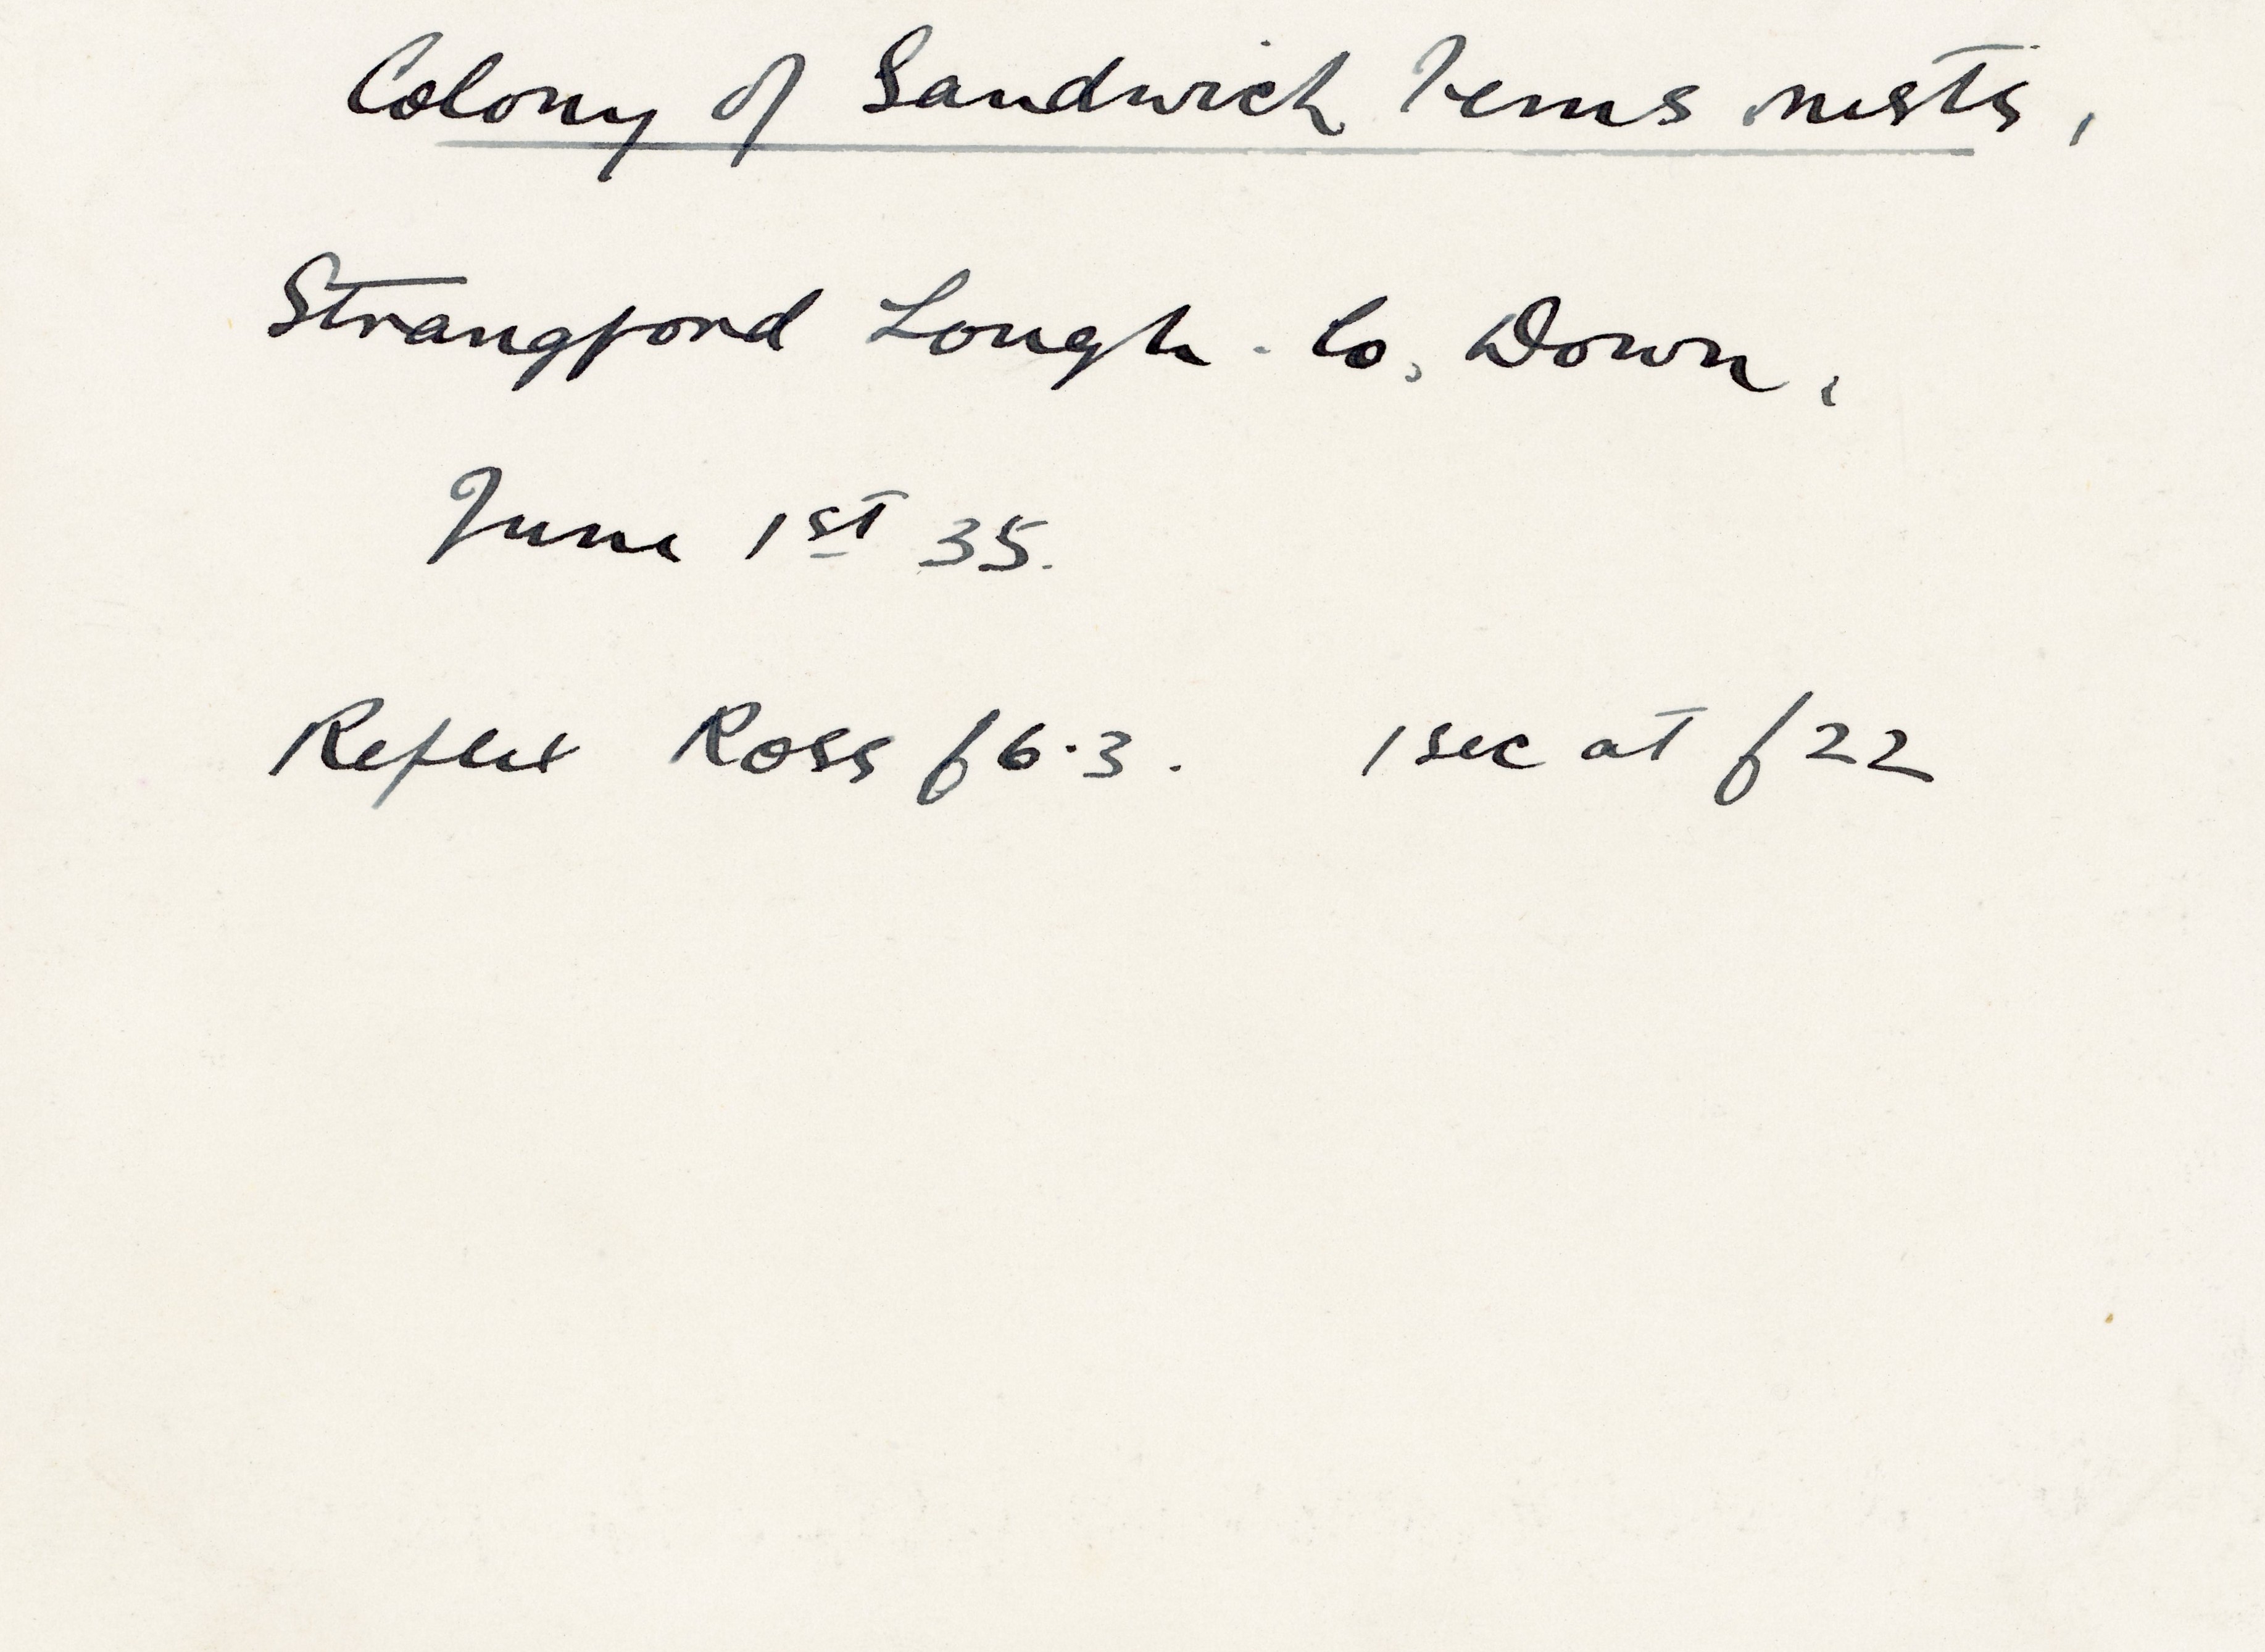 Colony of Sandwich Terns nests,
Strangford Lough - Co. Down.
June 1st 35.
Reflex Ross f6·3. 1 sec at f22